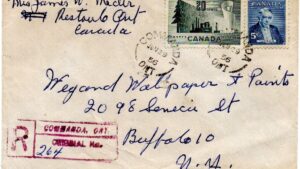 Mrs James W.
Restoule Ont
Canada
20
CANADA
CANADA
5
COMMANDA
56
ONT.
Wegand Wallpaper & Paints
2098 Seneca St
Buffalo 10
N.Y.
R
COMMANDA, ONT.
ORIGINAL No.
264